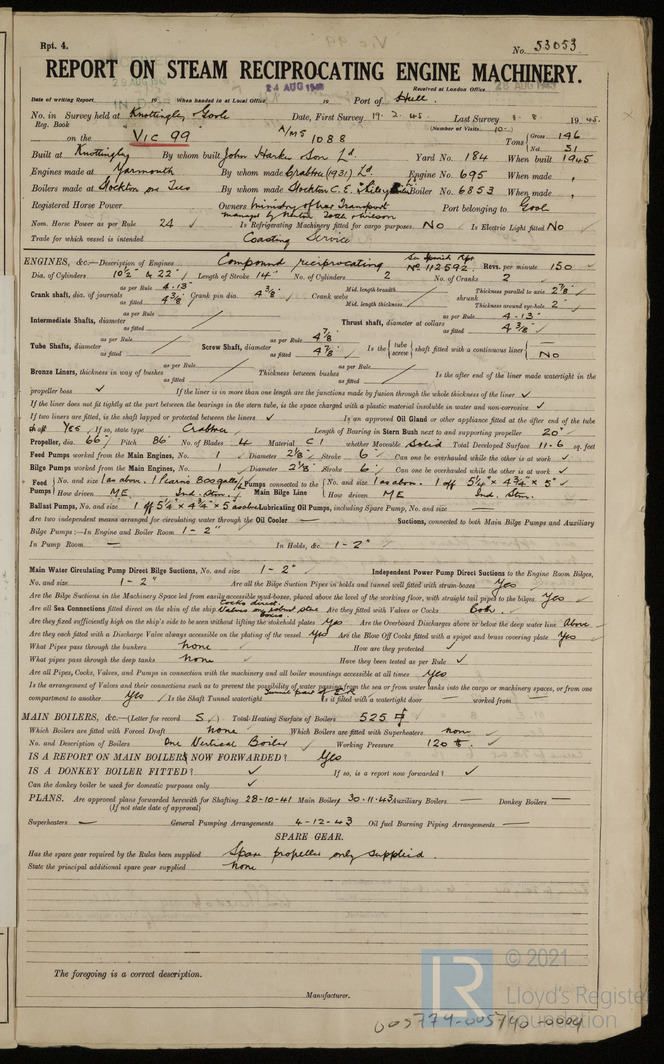 Rpt. 4.
No. 53053
REPORT ON STEAM RECIPROCATING ENGINE MACHINERY.
Received at London Office
24 AUG 1945
Date of writing Report 19 When handed in at Local Office 19 Port of Hull.
No. in Survey held at Knottingley Goole Date, First Survey 19.2.45. Last Survey 8.8. 1945.
Reg. Book (Number of Visits 10)
on the VIC 99 1088 Tons Gross 146 Net 31
Built at Knottingley By whom built John Harker & Son Ld. Yard No. 184 When built 1945
Engines made at Yarmouth By whom made Crabtree (1931) Ld. Engine No. 695 When made "
Boilers made at Stockton on Tees By whom made Stockton C.E. & Riley Boiler Boiler No. 6853 When made "
Registered Horse Power Owners Ministry of War Transport Port belonging to Goole
Nom. Horse Power as per Rule 24 Is Refrigerating Machinery fitted for cargo purposes No Is Electric Light fitted No
Trade for which vessel is intended Coasting Service
ENGINES, &c.—Description of Engines Compound reciprocating No 112592. Revs. per minute 150
Dia. of Cylinders 10½" & 22" Length of Stroke 14" No. of Cylinders 2 No. of Cranks 2
Crank shaft, dia. of journals as per Rule 4.13" as fitted 4⅜" Crank pin dia. 4⅜" Crank webs Mid. length breadth Mid. length thickness shrunk Thickness parallel to axis 2⅞" Thickness around eye-hole 2"
Intermediate Shafts, diameter as per Rule as fitted Thrust shaft, diameter at collars as per Rule 4.13" as fitted 4⅜"
Tube Shafts, diameter as per Rule as fitted Screw Shaft, diameter as per Rule 4⅞" as fitted 4⅞" Is the tube screw shaft fitted with a continuous liner No
Bronze Liners, thickness in way of bushes as per Rule as fitted Thickness between bushes as per Rule as fitted Is the after end of the liner made watertight in the
propeller boss ✓ If the liner is in more than one length are the junctions made by fusion through the whole thickness of the liner ✓
If the liner does not fit tightly at the part between the bearings in the stern tube, is the space charged with a plastic material insoluble in water and non-corrosive ✓
If two liners are fitted, is the shaft lapped or protected between the liners ✓ Is an approved Oil Gland or other appliance fitted at the after end of the tube
shaft YES If so, state type Crabtree Length of Bearing in Stern Bush next to and supporting propeller 20"
Propeller, dia. 66" Pitch 86" No. of Blades 4 Material C I whether Moveable Solid Total Developed Surface 11.6 sq. feet
Feed Pumps worked from the Main Engines, No. 1 Diameter 2⅛" Stroke 6" Can one be overhauled while the other is at work ✓
Bilge Pumps worked from the Main Engines, No. 1 Diameter 2⅛" Stroke 6" Can one be overhauled while the other is at work ✓
Feed Pumps No. and size 1 as above. 1 Pearn 800 gall/h Pumps connected to the Main Bilge Line No. and size 1 as above. 1 off 5¼" x 4¾" x 5"
How driven ME Ind. Stm. How driven ME Ind. Stm.
Ballast Pumps, No. and size 1 off 5¼" x 4¾" x 5" as above Lubricating Oil Pumps, including Spare Pump, No. and size —
Are two independent means arranged for circulating water through the Oil Cooler — Suctions, connected to both Main Bilge Pumps and Auxiliary
Bilge Pumps:—In Engine and Boiler Room 1 - 2"
In Pump Room — In Holds, &c. 1 - 2"
Main Water Circulating Pump Direct Bilge Suctions, No. and size 1 - 2" Independent Power Pump Direct Suctions to the Engine Room Bilges,
No. and size 1 - 2" Are all the Bilge Suction Pipes in holds and tunnel well fitted with strum-boxes Yes
Are the Bilge Suctions in the Machinery Space led from easily accessible mud-boxes, placed above the level of the working floor, with straight tail pipes to the bilges Yes
Are all Sea Connections fitted direct on the skin of the ship Cocks direct. Valves on steel boxes Are they fitted with Valves or Cocks Both.
Are they fixed sufficiently high on the ship's side to be seen without lifting the stokehold plates Yes Are the Overboard Discharges above or below the deep water line Above
Are they each fitted with a Discharge Valve always accessible on the plating of the vessel Yes Are the Blow Off Cocks fitted with a spigot and brass covering plate Yes
What Pipes pass through the bunkers None How are they protected ✓
What pipes pass through the deep tanks None Have they been tested as per Rule ✓
Are all Pipes, Cocks, Valves, and Pumps in connection with the machinery and all boiler mountings accessible at all times Yes
Is the arrangement of Valves and their connections such as to prevent the possibility of water passing from the sea or from water tanks into the cargo or machinery spaces, or from one
compartment to another Yes Is the Shaft Tunnel watertight Tunnel part of E.R. Is it fitted with a watertight door — worked from —
MAIN BOILERS, &c.—(Letter for record S) Total Heating Surface of Boilers 525
Which Boilers are fitted with Forced Draft None Which Boilers are fitted with Superheaters None
No. and Description of Boilers One Vertical Boiler Working Pressure 120 lb.
IS A REPORT ON MAIN BOILERS NOW FORWARDED? Yes
IS A DONKEY BOILER FITTED? ✓ If so, is a report now forwarded? ✓
Can the donkey boiler be used for domestic purposes only ✓
PLANS. Are approved plans forwarded herewith for Shafting 28-10-41 Main Boilers 30.11.43 Auxiliary Boilers — Donkey Boilers —
(If not state date of approval)
Superheaters — General Pumping Arrangements 4-12-43 Oil fuel Burning Piping Arrangements —
SPARE GEAR.
Has the spare gear required by the Rules been supplied Spare propeller only supplied.
State the principal additional spare gear supplied None
The foregoing is a correct description.
Manufacturer.
LR © 2021
Lloyd's Register
Foundation
005774-005740-0004